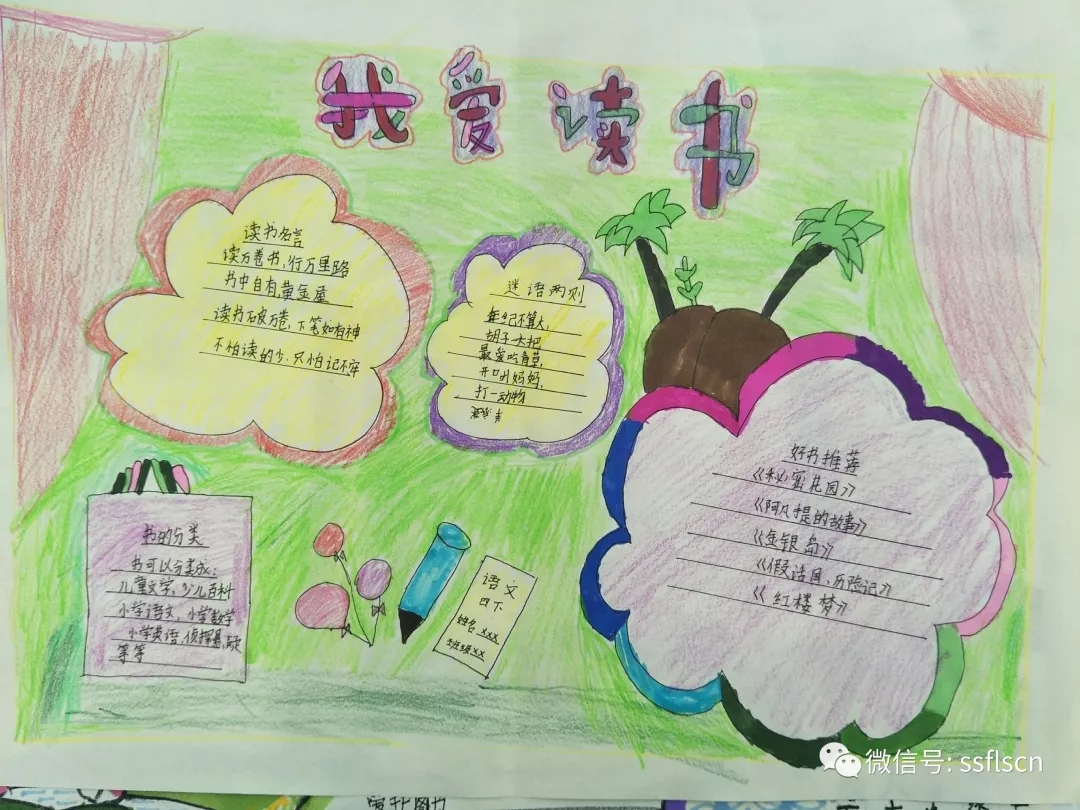 我爱读书
读书名言
读万卷书，行万里路
书中自有黄金屋
读书破万卷，下笔如有神
不怕读的少，只怕记不牢
迷语两则
年纪不算大，
胡子一大把
最爱吃青草，
开口叫妈妈，
打一动物
好书推荐
《秘密花园》
《阿凡提的故事》
《金银岛》
《假话国历险记》
《红楼梦》
书的分类
书可以分类成：
儿童文学，少儿百科
小学语文，小学数学
小学英语，侦探悬
等等
语文
四下
姓名xxx
班级xx
微信号: ssflscn